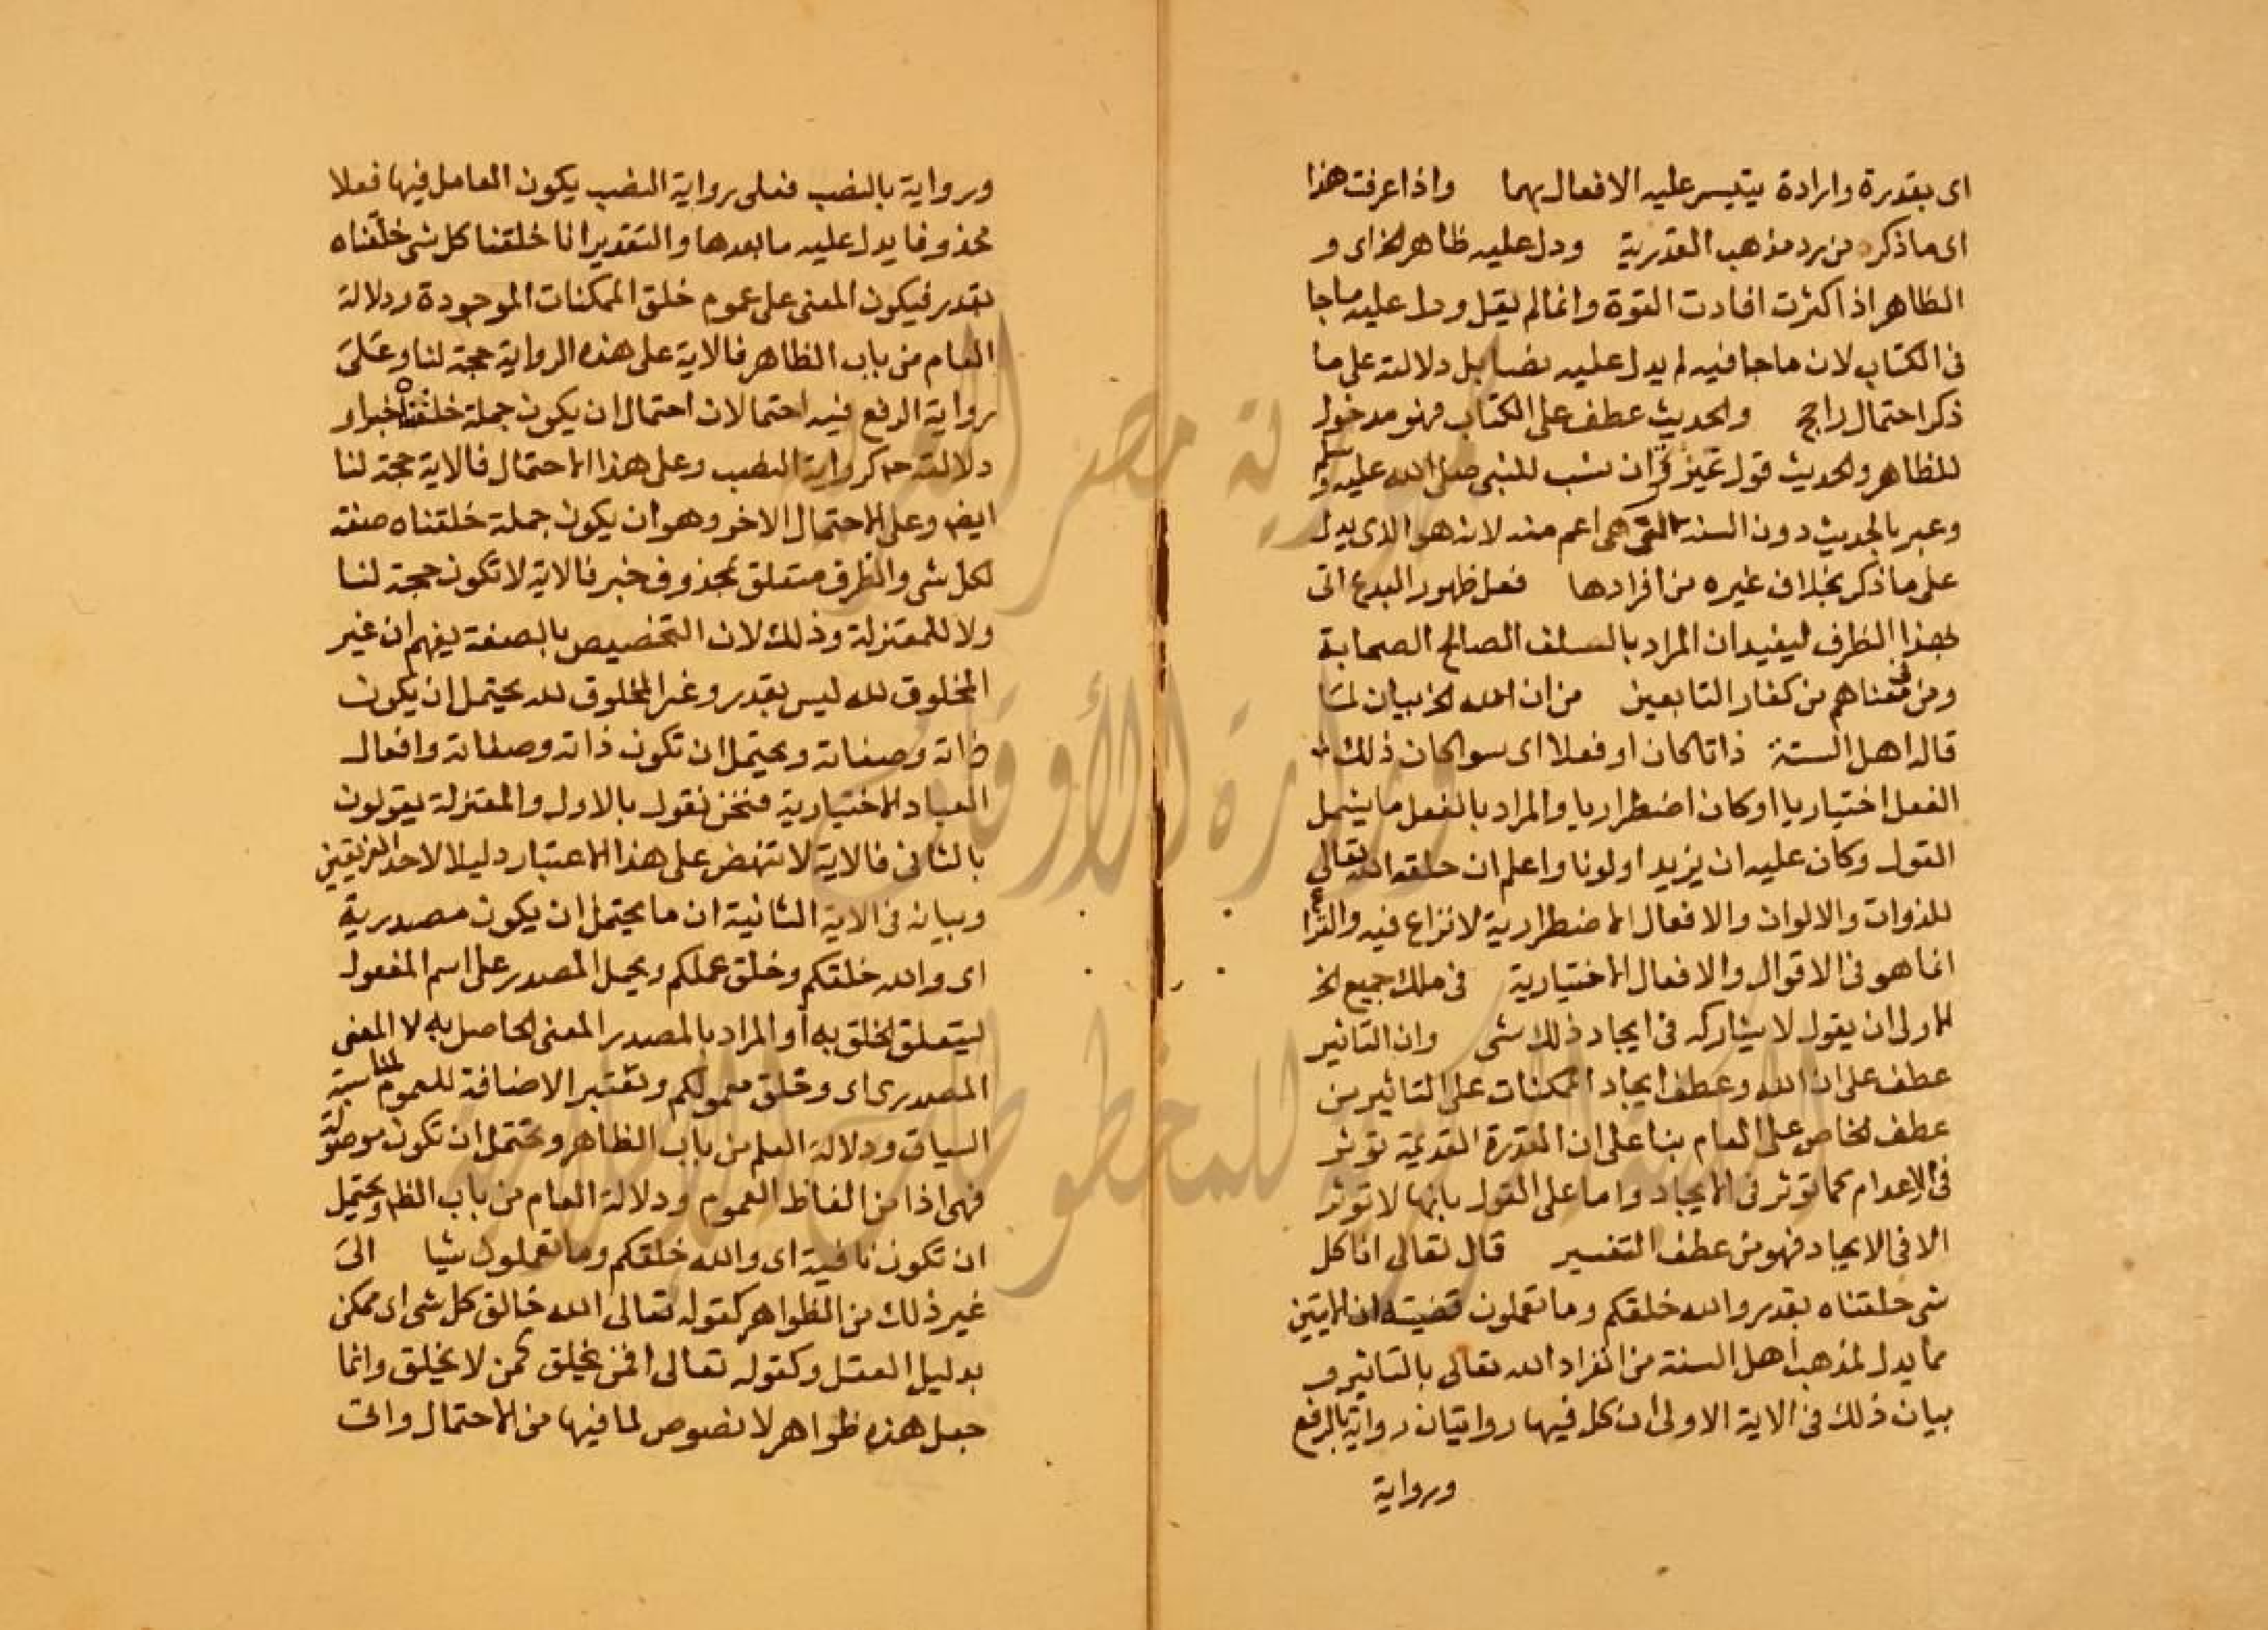 اى بقدرة وارادة يتيسر عليه الافعال بهما واذا عرفت هذا
اى ما ذكر من رد مذهب القدرية ودل عليه ظاهر الخ اى و
الظاهر اذا كثرت افادت القوة وانما لم يقل ودل عليه ما جا
فى الكتاب لان ما جا فيه لم يدل عليه نصا بل دلالته على ما
ذكر احتمال راجح والحديث عطف على الكتاب فهو مدخول
للظاهر والحديث قول غير قران نسب للنبى صلى الله عليه وسلم
وعبر بالحديث دون السنة التى هى اعم منه لانه هو الذى يدل
على ما ذكر بخلاف غيره من افرادها قبل ظهور البدع اتى
بهذا الظرف ليفيد ان المراد بالسلف الصالح الصحابة
ومن فى معناهم من كفار التابعين من ان الله الخ بيان لما
قاله اهل السنة ذاتا كان او فعلا اى سوا كان ذلك
الفعل اختياريا او كان اضطراريا والمراد بالفعل ما يشمل
القول وكان عليه ان يزيد او لونا واعلم ان خلقه الله تعالى
للذوات والالوان والافعال الاضطرارية لا نزاع فيه والنزاع
انما هو فى الاقوال والافعال الاختيارية فى ملك جميع الخ
الاولى ان يقول لا يشاركه فى ايجاد ذلك شى وان التاثير
عطف على ان الله وعطف ايجاد الممكنات على التاثير من
عطف الخاص على العام بنا على ان القدرة القديمة توثر
فى الاعدام كما توثر فى الايجاد واما على القول بانها لا توثر
الا فى الايجاد فهو من عطف التفسير قال تعالى انا كل
شى خلقناه بقدر والله خلقكم وما تعملون قضيته ان الايتين
مما يدل لمذهب اهل السنة من انفراد الله تعالى بالتاثير و
بيان ذلك فى الاية الاولى ان كل فيها روايتان رواية بالرفع
ورواية
ورواية بالنصب فعلى رواية النصب يكون العامل فيها فعلا
محذوفا يدل عليه ما بعدها والتقدير انا خلقنا كل شى خلقناه
بقدر فيكون المعنى على عموم خلق الممكنات الموجودة ودلالة
العام من باب الظاهر فالاية على هذه الرواية حجة لنا وعلى
رواية الرفع فيه احتمالان احتمال ان يكون جملة خلقناه خبرا و
دلالته ح كرواية النصب وعلى هذا الاحتمال فالاية حجة لنا
ايضا وعلى الاحتمال الاخر وهو ان يكون جملة خلقناه صفة
لكل شى والظرف متعلق بمحذوف خبر فالاية لا تكون حجة لنا
ولا للمعتزلة وذلك لان التخصيص بالصفة يفهم ان غير
المخلوق لله ليس بقدر وغير المخلوق لله يحتمل ان يكون
ذاته وصفاته ويحتمل ان تكون ذاته وصفاته وافعال
العباد الاختيارية فنحن نقول بالاول والمعتزلة يقولون
بالثانى فالاية لا تنهض على هذا الاعتبار دليلا لاحد الفريقين
وبيانه فى الاية الثانية ان ما يحتمل ان يكون مصدرية
اى والله خلقكم وخلق عملكم ويحمل المصدر على اسم المفعول
ليتعلق الخلق به او المراد بالمصدر المعنى الحاصل به لا المعنى
المصدرى اى وخلق معمولكم وتعتبر الاضافة للعموم لمناسبة
السياق ودلالة العام من باب الظاهر وتحتمل ان تكون موصولة
فهى اذا من الفاظ العموم ودلالة العام من باب الظاهر ويحتمل
ان تكون نافية اى والله خلقكم وما تعملون شيا الى
غير ذلك من الظواهر كقوله تعالى الله خالق كل شى اى ممكن
بدليل العقل وكقوله تعالى افمن يخلق كمن لا يخلق وانما
جعل هذه ظواهر لا نصوص لما فيها من الاحتمال والت